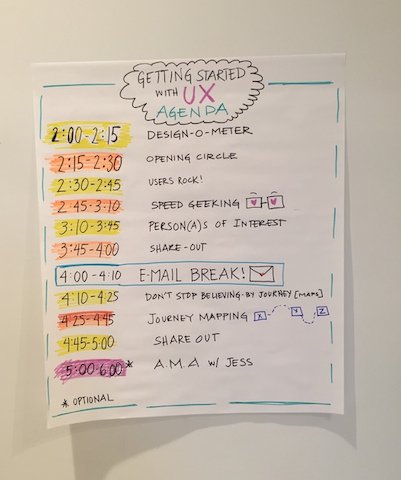 GETTING STARTED
WITH UX
AGENDA
2:00-2:15 DESIGN-O-METER
2:15-2:30 OPENING CIRCLE
2:30-2:45 USERS ROCK!
2:45-3:10 SPEED GEEKING
3:10-3:45 PERSON(A)S OF INTEREST
3:45-4:00 SHARE-OUT
4:00-4:10 E-MAIL BREAK!
4:10-4:25 DON'T STOP BELIEVING-BY JOURNEY [MAPS]
4:25-4:45 JOURNEY MAPPING X Y Z
4:45-5:00 SHARE OUT
5:00-6:00* A.M.A W/ JESS
* OPTIONAL